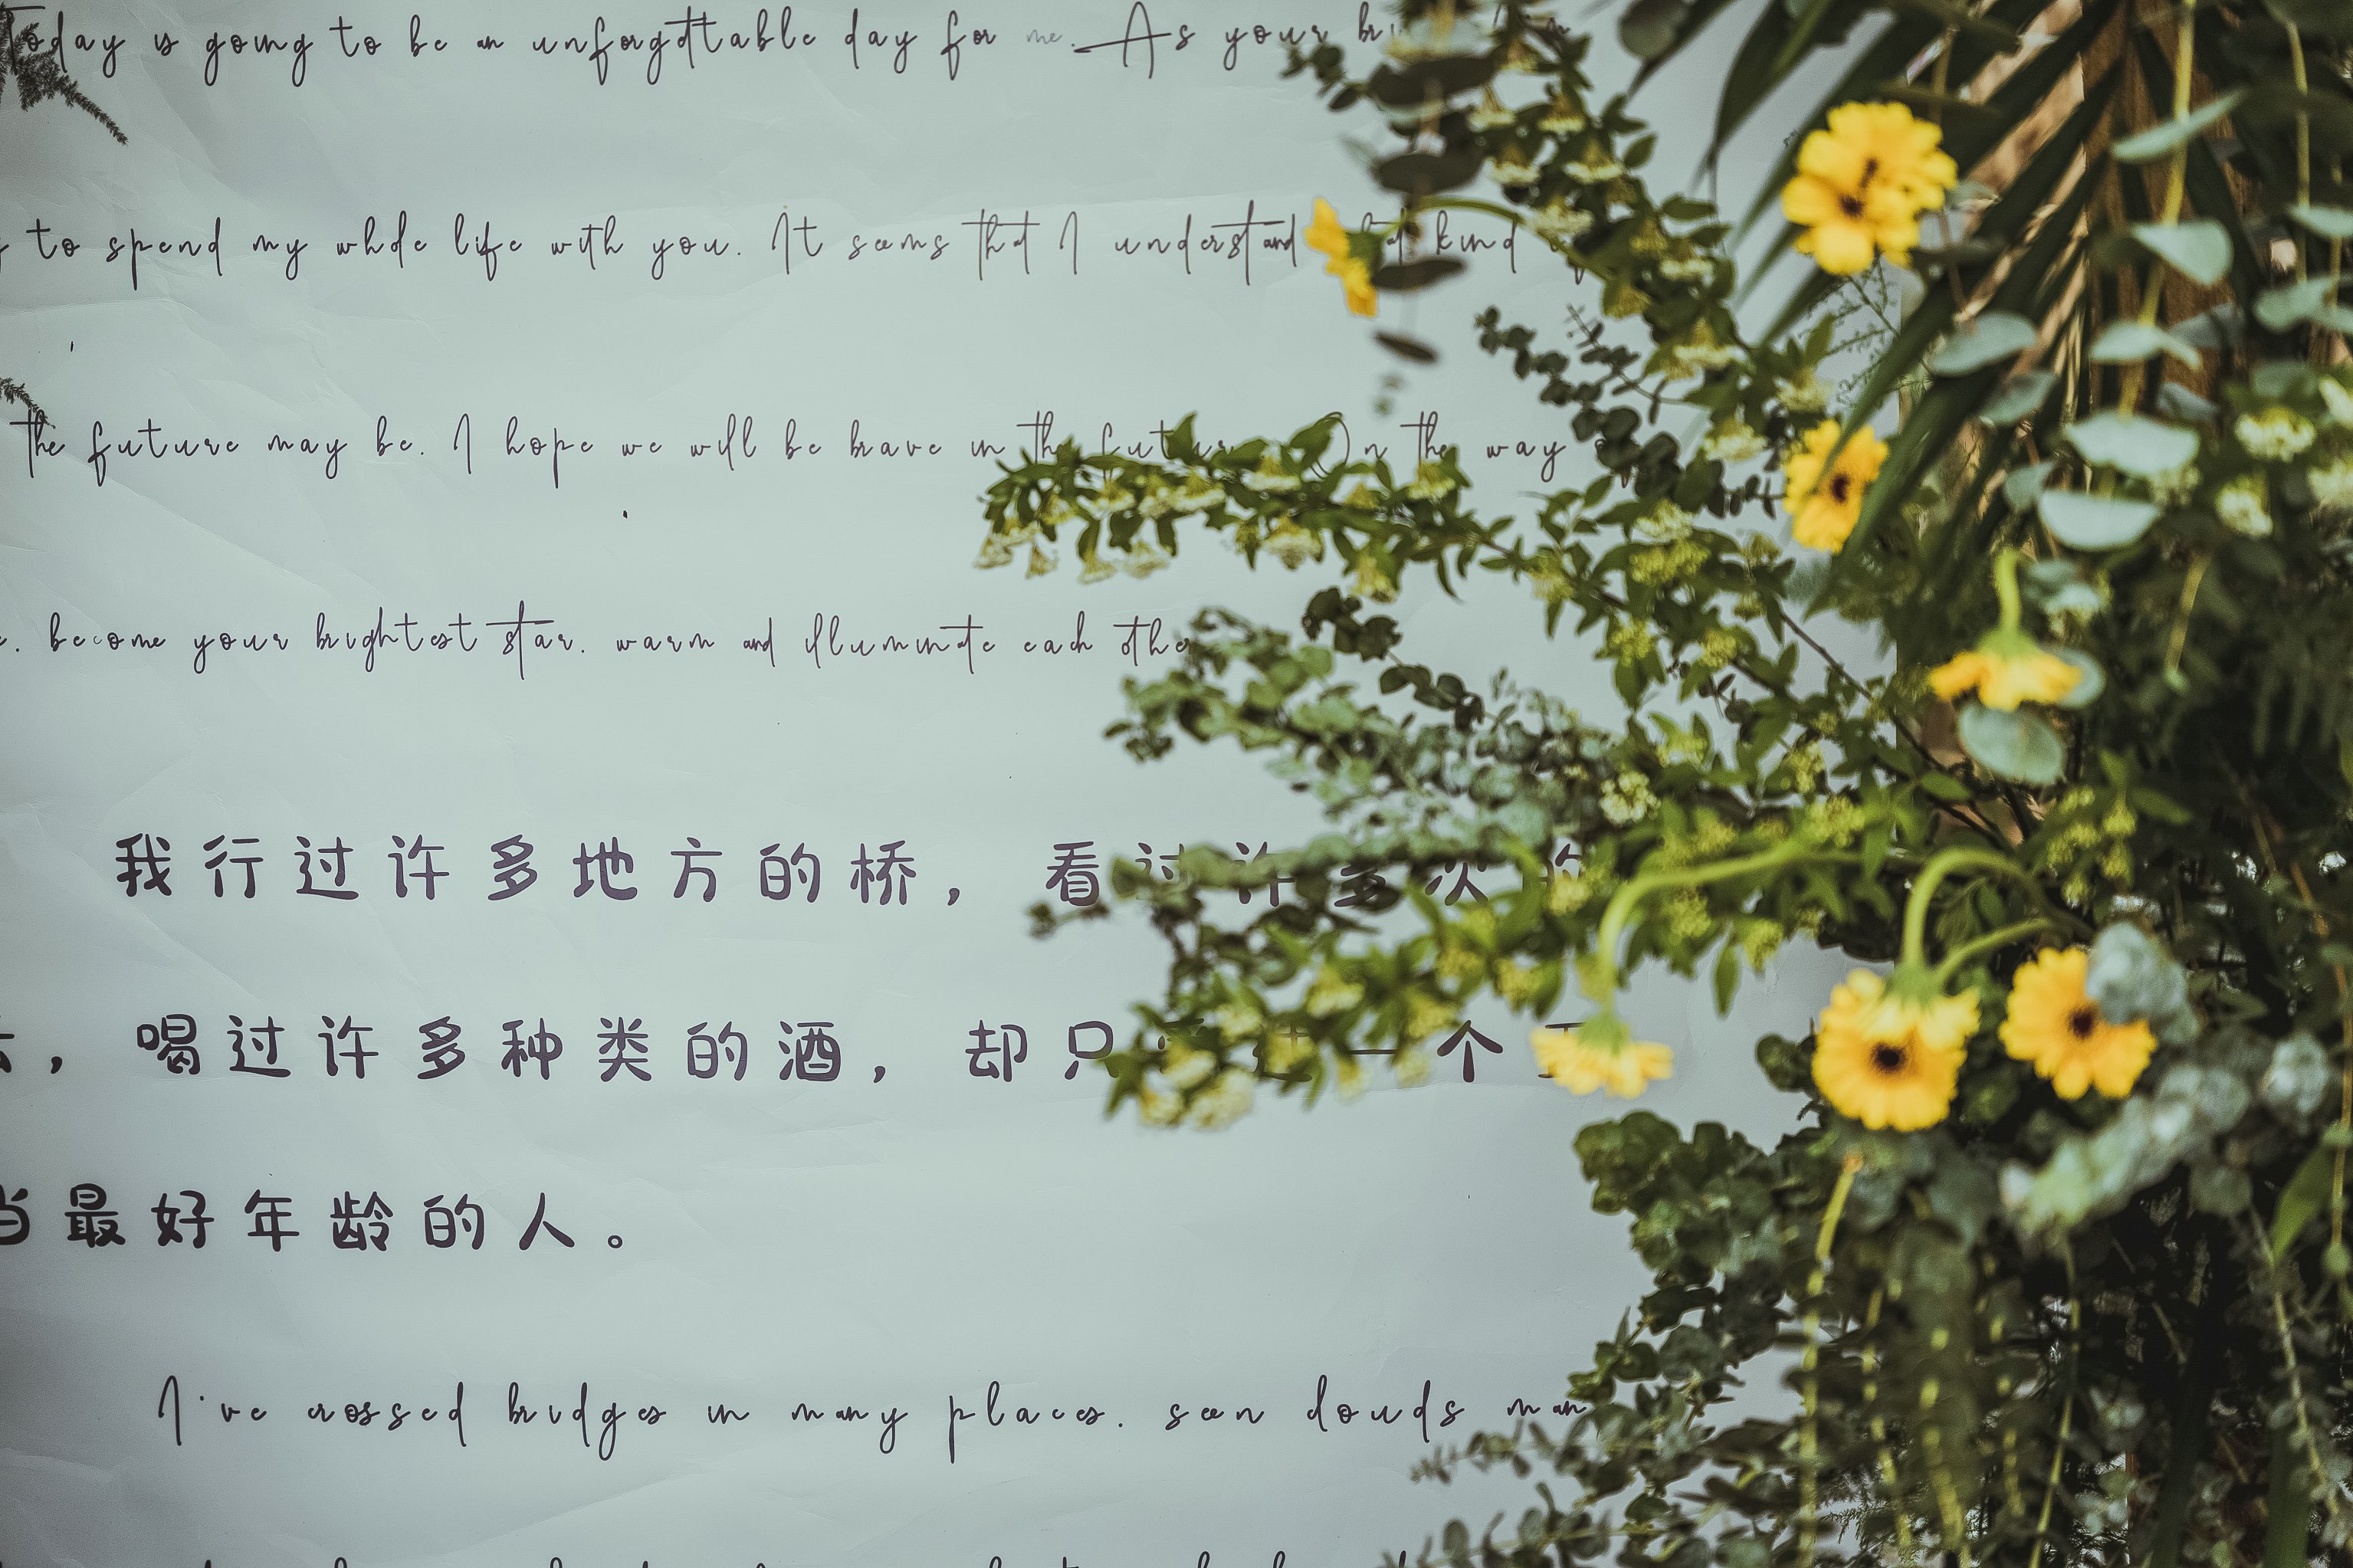 Today is going to be an unforgettable day for me. As your
to spend my whole life with you. It seems that I understand kind
the future may be. I hope we will be brave in the future On the way
become your brightest star. warm and illuminate each other
我行过许多地方的桥，看过许多次的
，喝过许多种类的酒，却只 一个
当最好年龄的人。
I've crossed bridges in many places. seen clouds